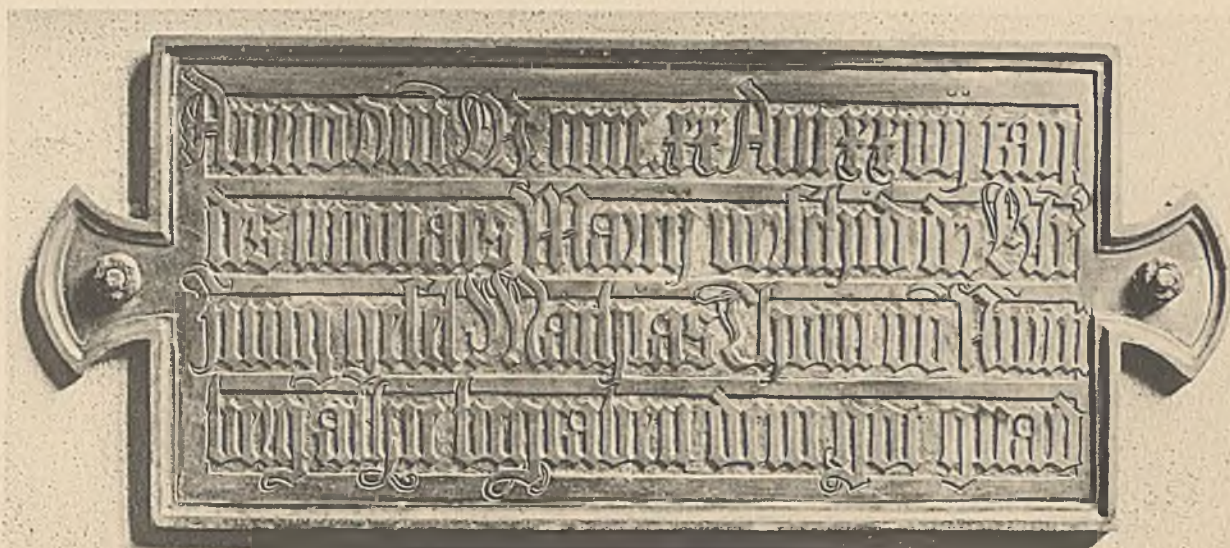 Anno dm̄ M xx Am xxvij tag
des monats verschid
Jung gesel Mathias Thom vō Nürn
berg alhie begraben dem got gnad